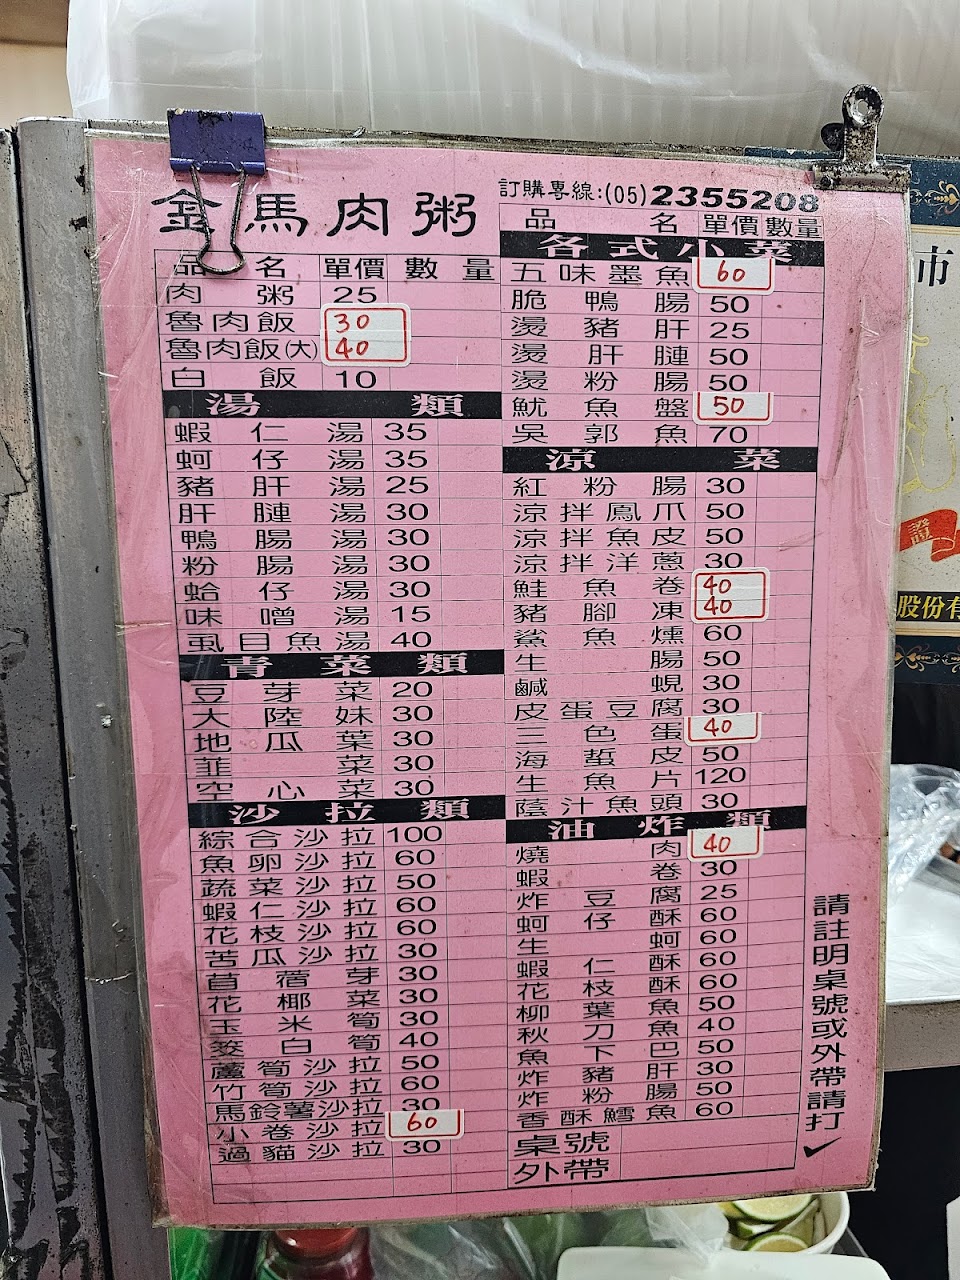 金馬肉粥
品名 單價 數量
肉粥 25
魯肉飯 30
魯肉飯(大) 40
白飯 10
湯類
蝦仁湯 35
蚵仔湯 35
豬肝湯 25
肝腱湯 30
鴨腸湯 30
粉腸湯 30
蛤仔湯 30
味噌湯 15
虱目魚湯 40
青菜類
豆芽菜 20
大陸妹 30
地瓜葉 30
韮菜 30
空心菜 30
沙拉類
綜合沙拉 100
魚卵沙拉 60
蔬菜沙拉 50
蝦仁沙拉 60
花枝沙拉 60
苦瓜沙拉 30
苜蓿芽 30
花椰菜 30
玉米筍 30
茭白筍 40
蘆筍沙拉 50
竹筍沙拉 60
馬鈴薯沙拉 30
小卷沙拉 60
過貓沙拉 30
訂購專線:(05)2355208
品名 單價 數量
各式小菜
五味墨魚 60
脆鴨腸 50
燙豬肝 25
燙肝腱 50
燙粉腸 50
魷魚盤 50
吳郭魚 70
涼菜
紅粉腸 30
涼拌鳳爪 50
涼拌魚皮 50
涼拌洋蔥 30
鮭魚卷 40
豬腳凍 40
鯊魚燻 60
生腸 50
鹹蜆 30
皮蛋豆腐 30
三色蛋 40
海蜇皮 50
生魚片 120
蔭汁魚頭 30
油炸類
燒肉 40
蝦卷 30
炸豆腐 25
蚵仔酥 60
生蚵 60
蝦仁酥 60
花枝酥 60
柳葉魚 50
秋刀魚 40
魚下巴 50
炸豬肝 30
炸粉腸 50
香酥鱈魚 60
桌號
外帶
請註明桌號或外帶請打✓
市
證
股份有